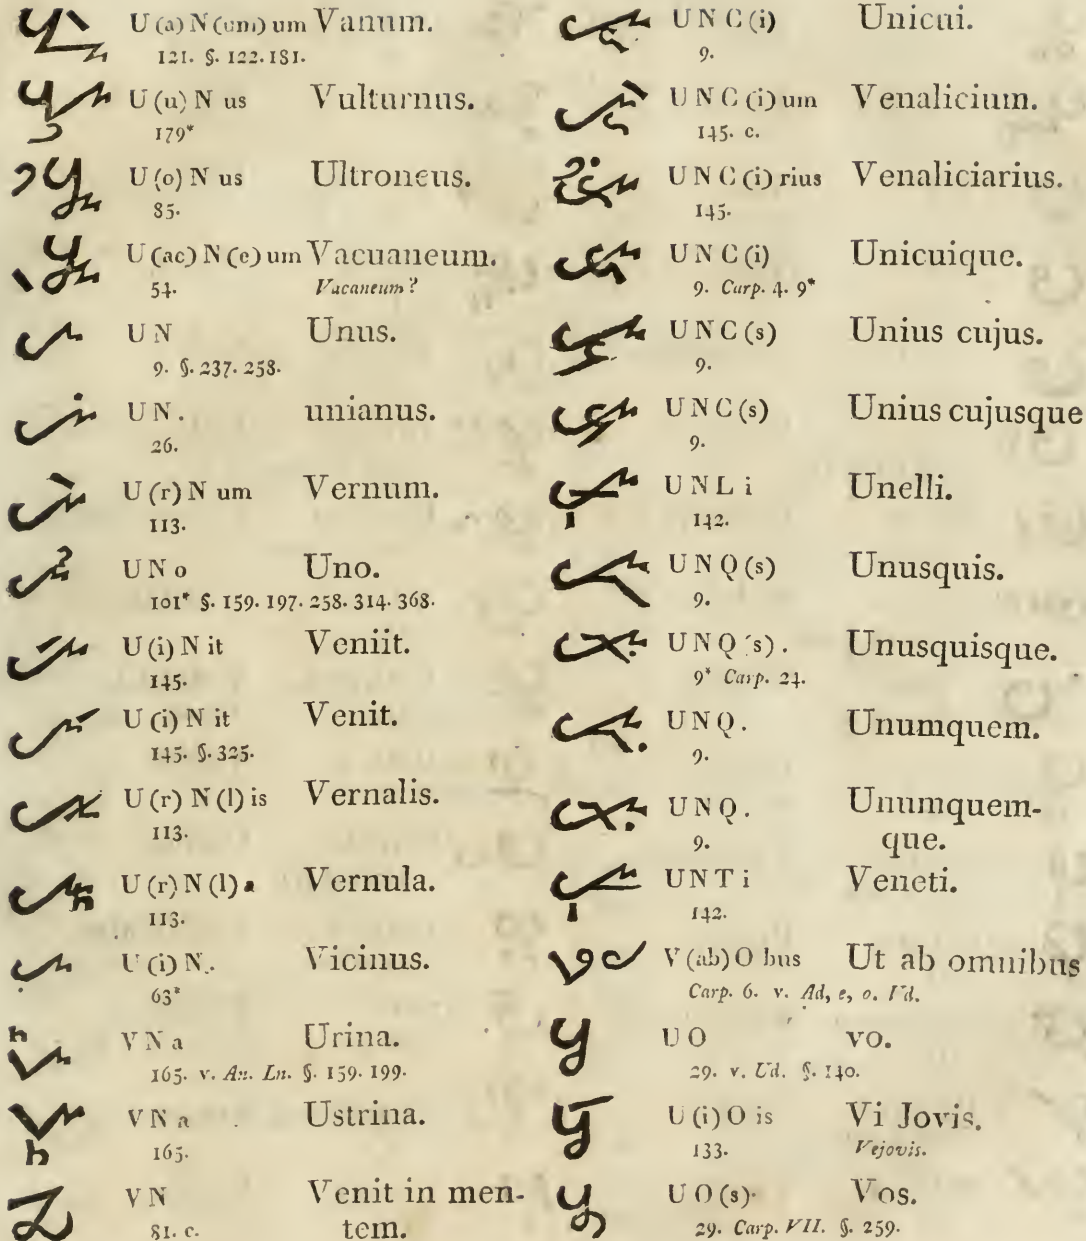 U (a) N (um) um Vanum.
121. §. 122. 181.
U (u) N us Vulturnus.
179*
U (o) N us Ultroneus.
85.
U (ac) N (e) um Vacuaneum.
54. Vacaneum?
U N Unus.
9. §. 237. 258.
U N. unianus.
26.
U (r) N um Vernum.
113.
U N o Uno.
101* §. 159. 197. 258. 314. 368.
U (i) N it Veniit.
145.
U (i) N it Venit.
145. §. 325.
U (r) N (l) is Vernalis.
113.
U (r) N (l) a Vernula.
113.
U (i) N. Vicinus.
63*
V N a Urina.
165. v. An. Ln. §. 159. 199.
V N a Ustrina.
165.
V N Venit in men-
81. c. tem.
U N C (i) Unicui.
9.
U N C (i) um Venalicium.
145. c.
U N C (i) rius Venaliciarius.
145.
U N C (i) Unicuique.
9. Carp. 4. 9*
U N C (s) Unius cujus.
9.
U N C (s) Unius cujusque
9.
U N L i Unelli.
142.
U N Q (s) Unusquis.
9.
U N Q (s). Unusquisque.
9* Carp. 24.
U N Q. Unumquem.
9.
U N Q. Unumquem-
9. que.
U N T i Veneti.
142.
V (ab) O bus Ut ab omnibus
Carp. 6. v. Ad, e, o. Vd.
U O vo.
29. v. Ud. §. 140.
U (i) O is Vi Jovis.
133. Vejovis.
U O (s) Vos.
29. Carp. VII. §. 259.